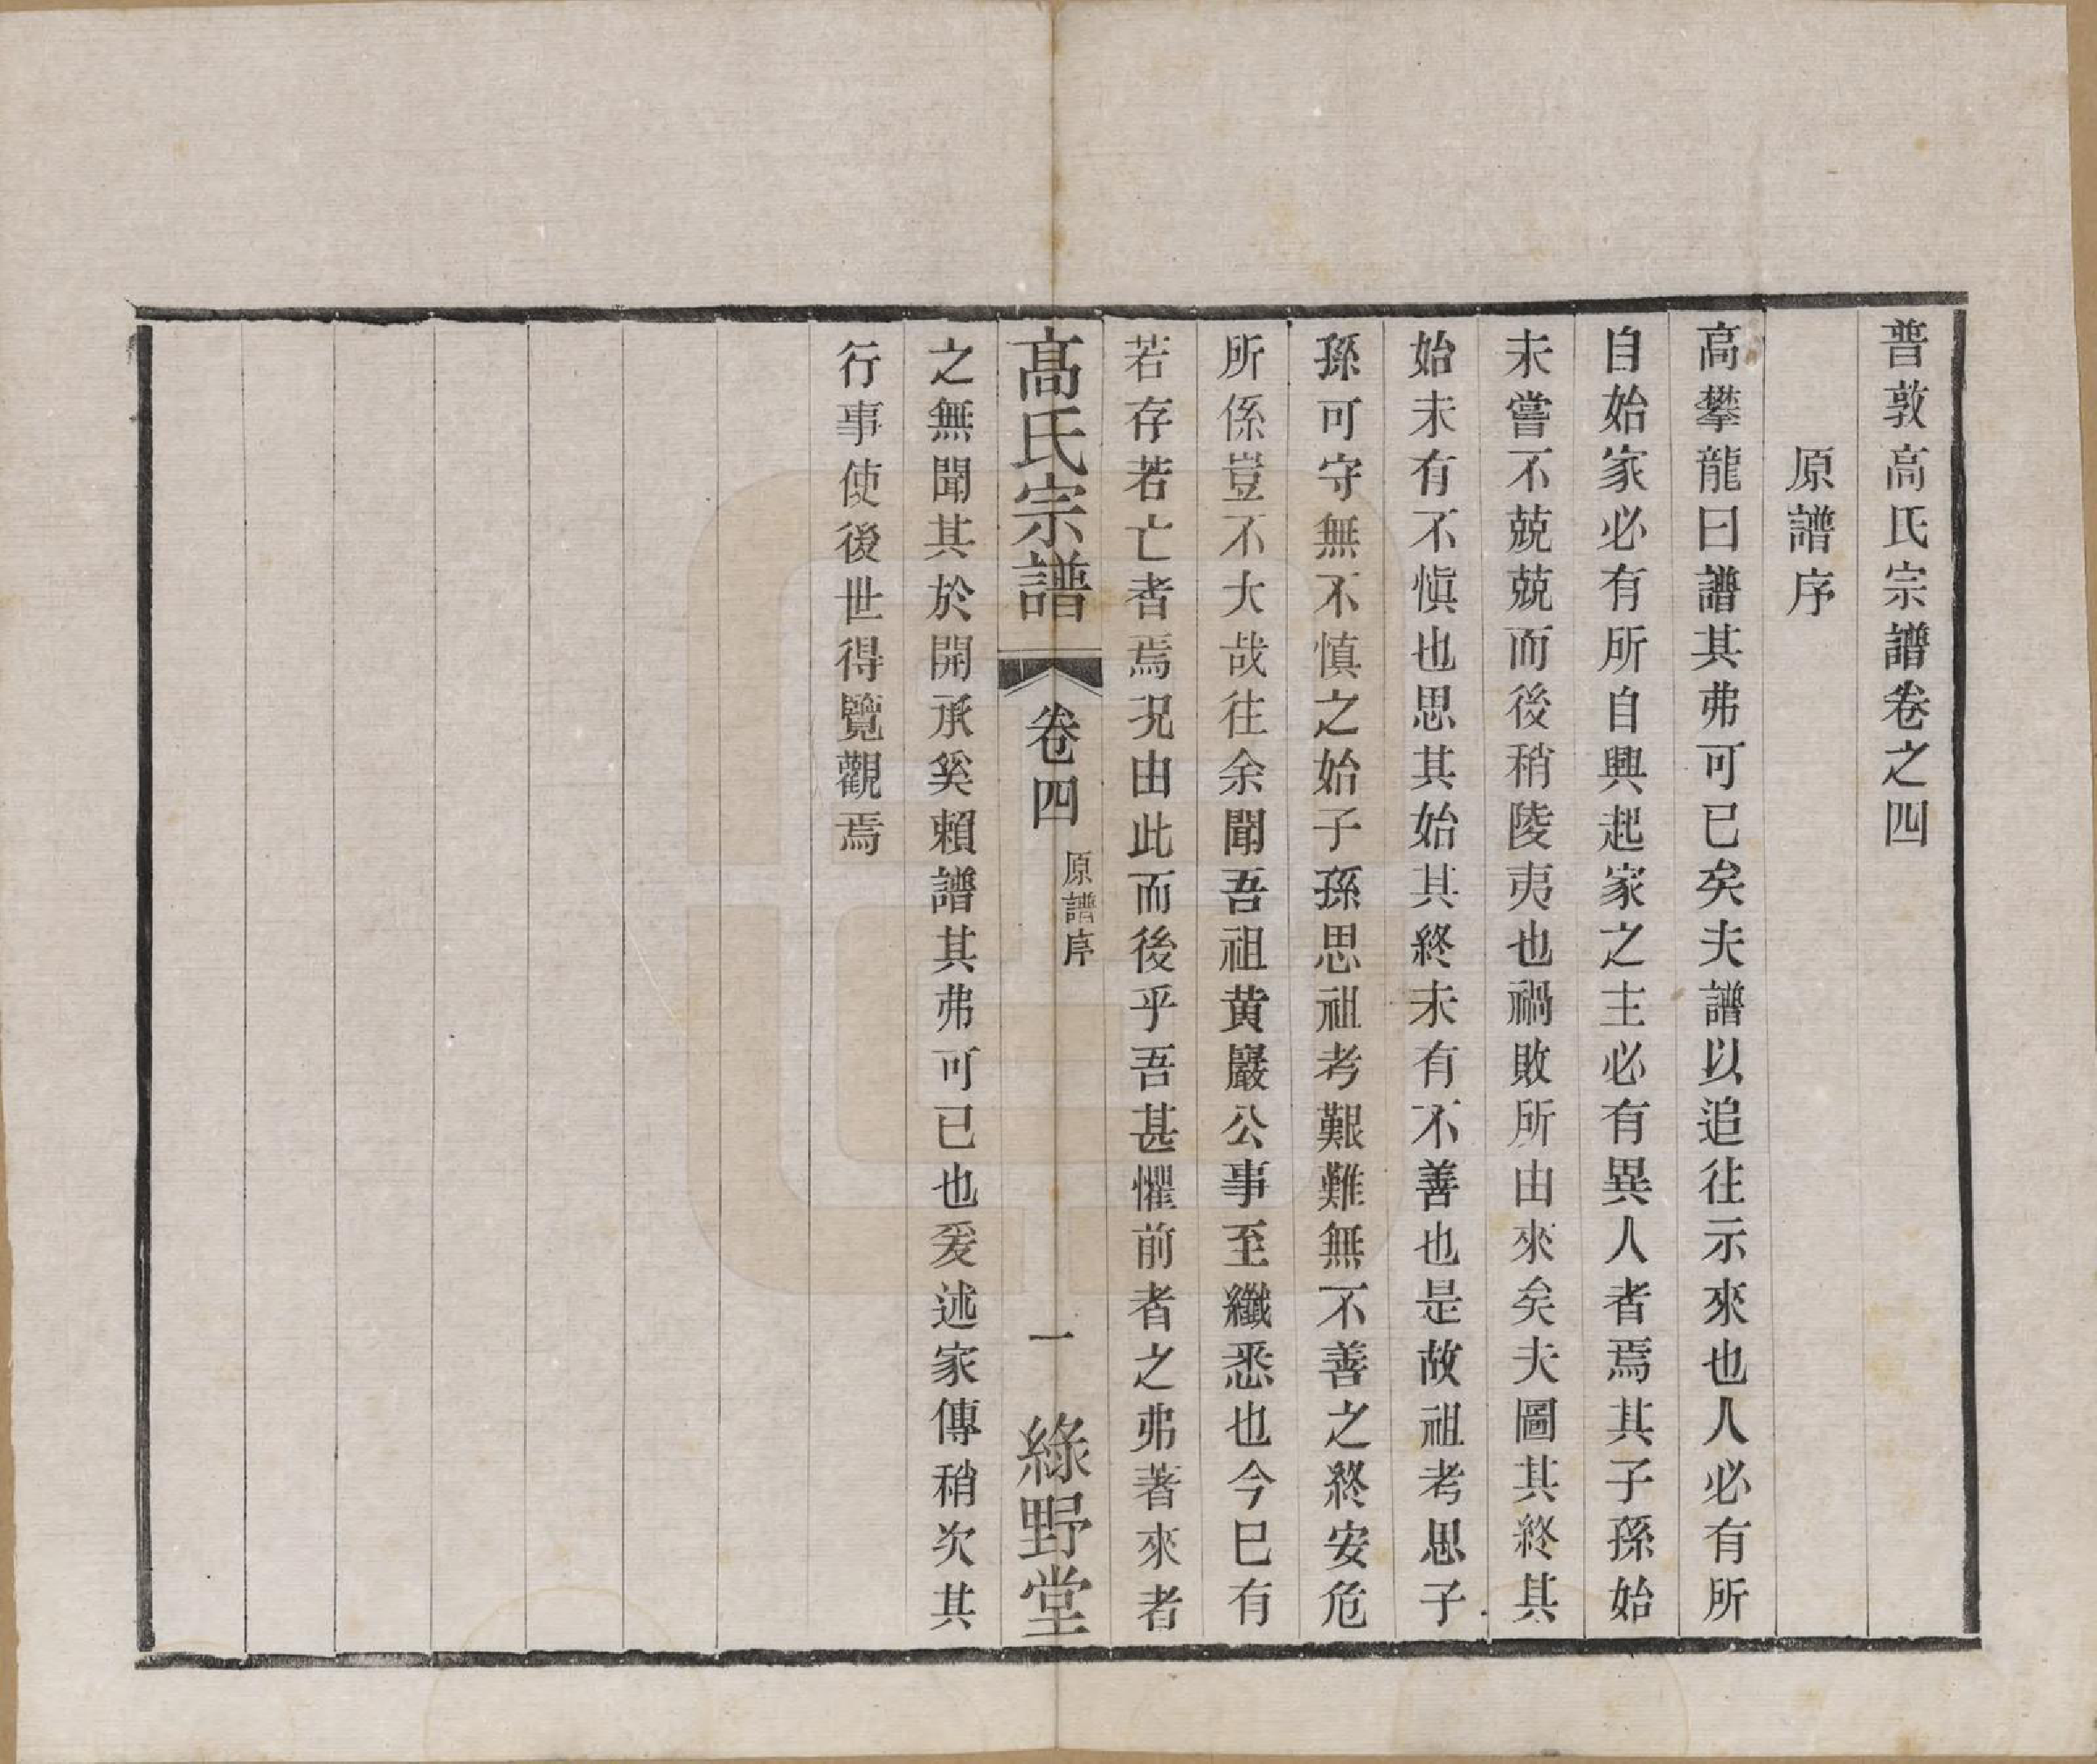 普敦高氏宗譜卷之四
原譜序
高攀龍曰譜其弗可已矣夫譜以追往示來也人必有所
自始家必有所自興起家之主必有異人者焉其子孫始
未嘗不兢兢而後稍陵夷也禍敗所由來矣夫圖其終其
始未有不愼也思其始其終未有不善也是故祖考思子
孫可守無不慎之始子孫思祖考艱難無不善之終安危
所係豈不大哉往余聞吾祖黄巖公事至纖悉也今巳有
若存若亡者焉况由此而後乎吾甚懼前者之弗著來者
高氏宗譜 卷四 原譜序 一 綠野堂
之無聞其於開承奚賴譜其弗可已也爰述家傳稍次其
行事使後世得覽觀焉